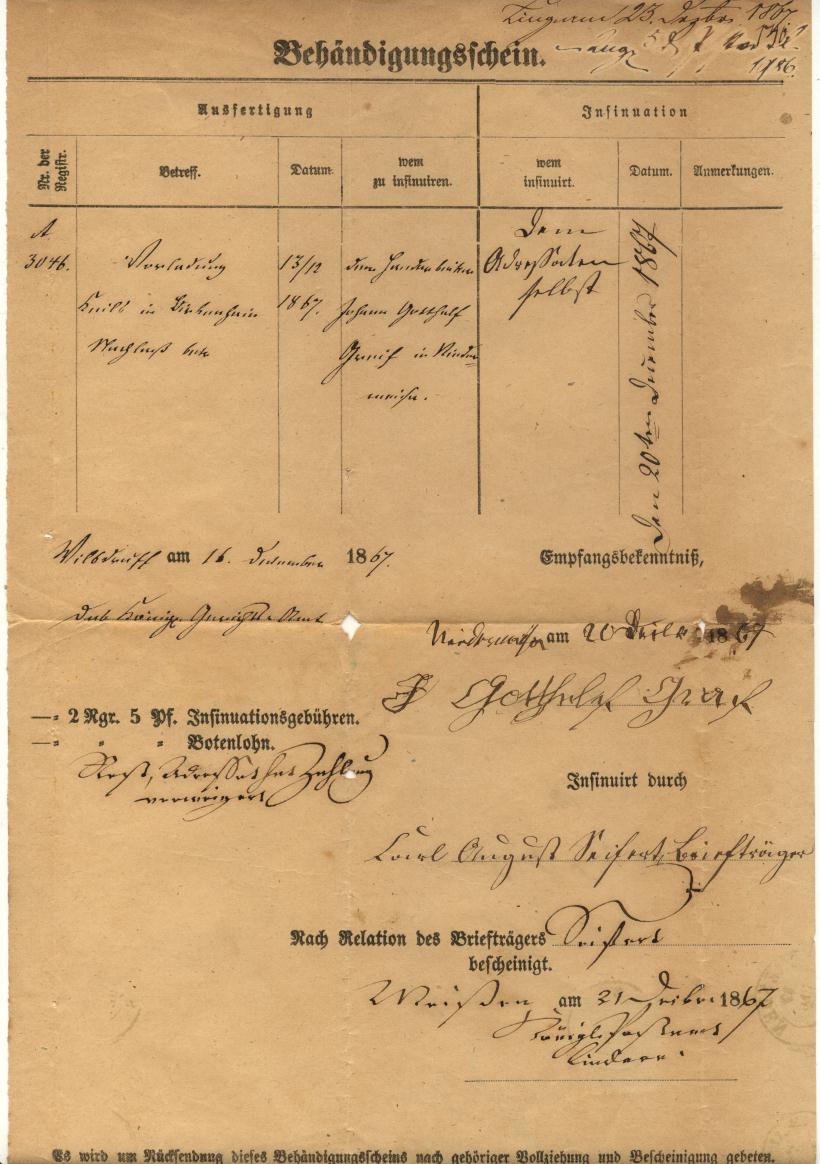 Eingegang. 23. Dezbr. 1867.
Behändigungsschein.
Ausfertigung
Insinuation
Nr. der Registr.
Betreff.
Datum.
wem
zu insinuiren.
wem
insinuirt.
Datum.
Anmerkungen.
A
3046.
Vorladung
in Birkenhain
Nachlaß betr.
13/12
1867.
dem
Johann Gotthelf
in Nieder-
Dem
Adressaten
selbst
Den 20ten December 1867
Wilsdruff am 16. December 1867.
Das Königl. Gerichts Amt
Empfangsbekenntniß,
am 20 1867
Gotthelf
—= 2 Ngr. 5 Pf. Insinuationsgebühren.
—= " " Botenlohn.
Rest, Adressat hat Zahlung
verweigert
Insinuirt durch
Carl August Seifert, Briefträger
Nach Relation des Briefträgers Seifert
bescheinigt.
Meißen am 21 Dezbr 1867
Königl. Postamt
Es wird um Rücksendung dieses Behändigungsscheins nach gehöriger Vollziehung und Bescheinigung gebeten.